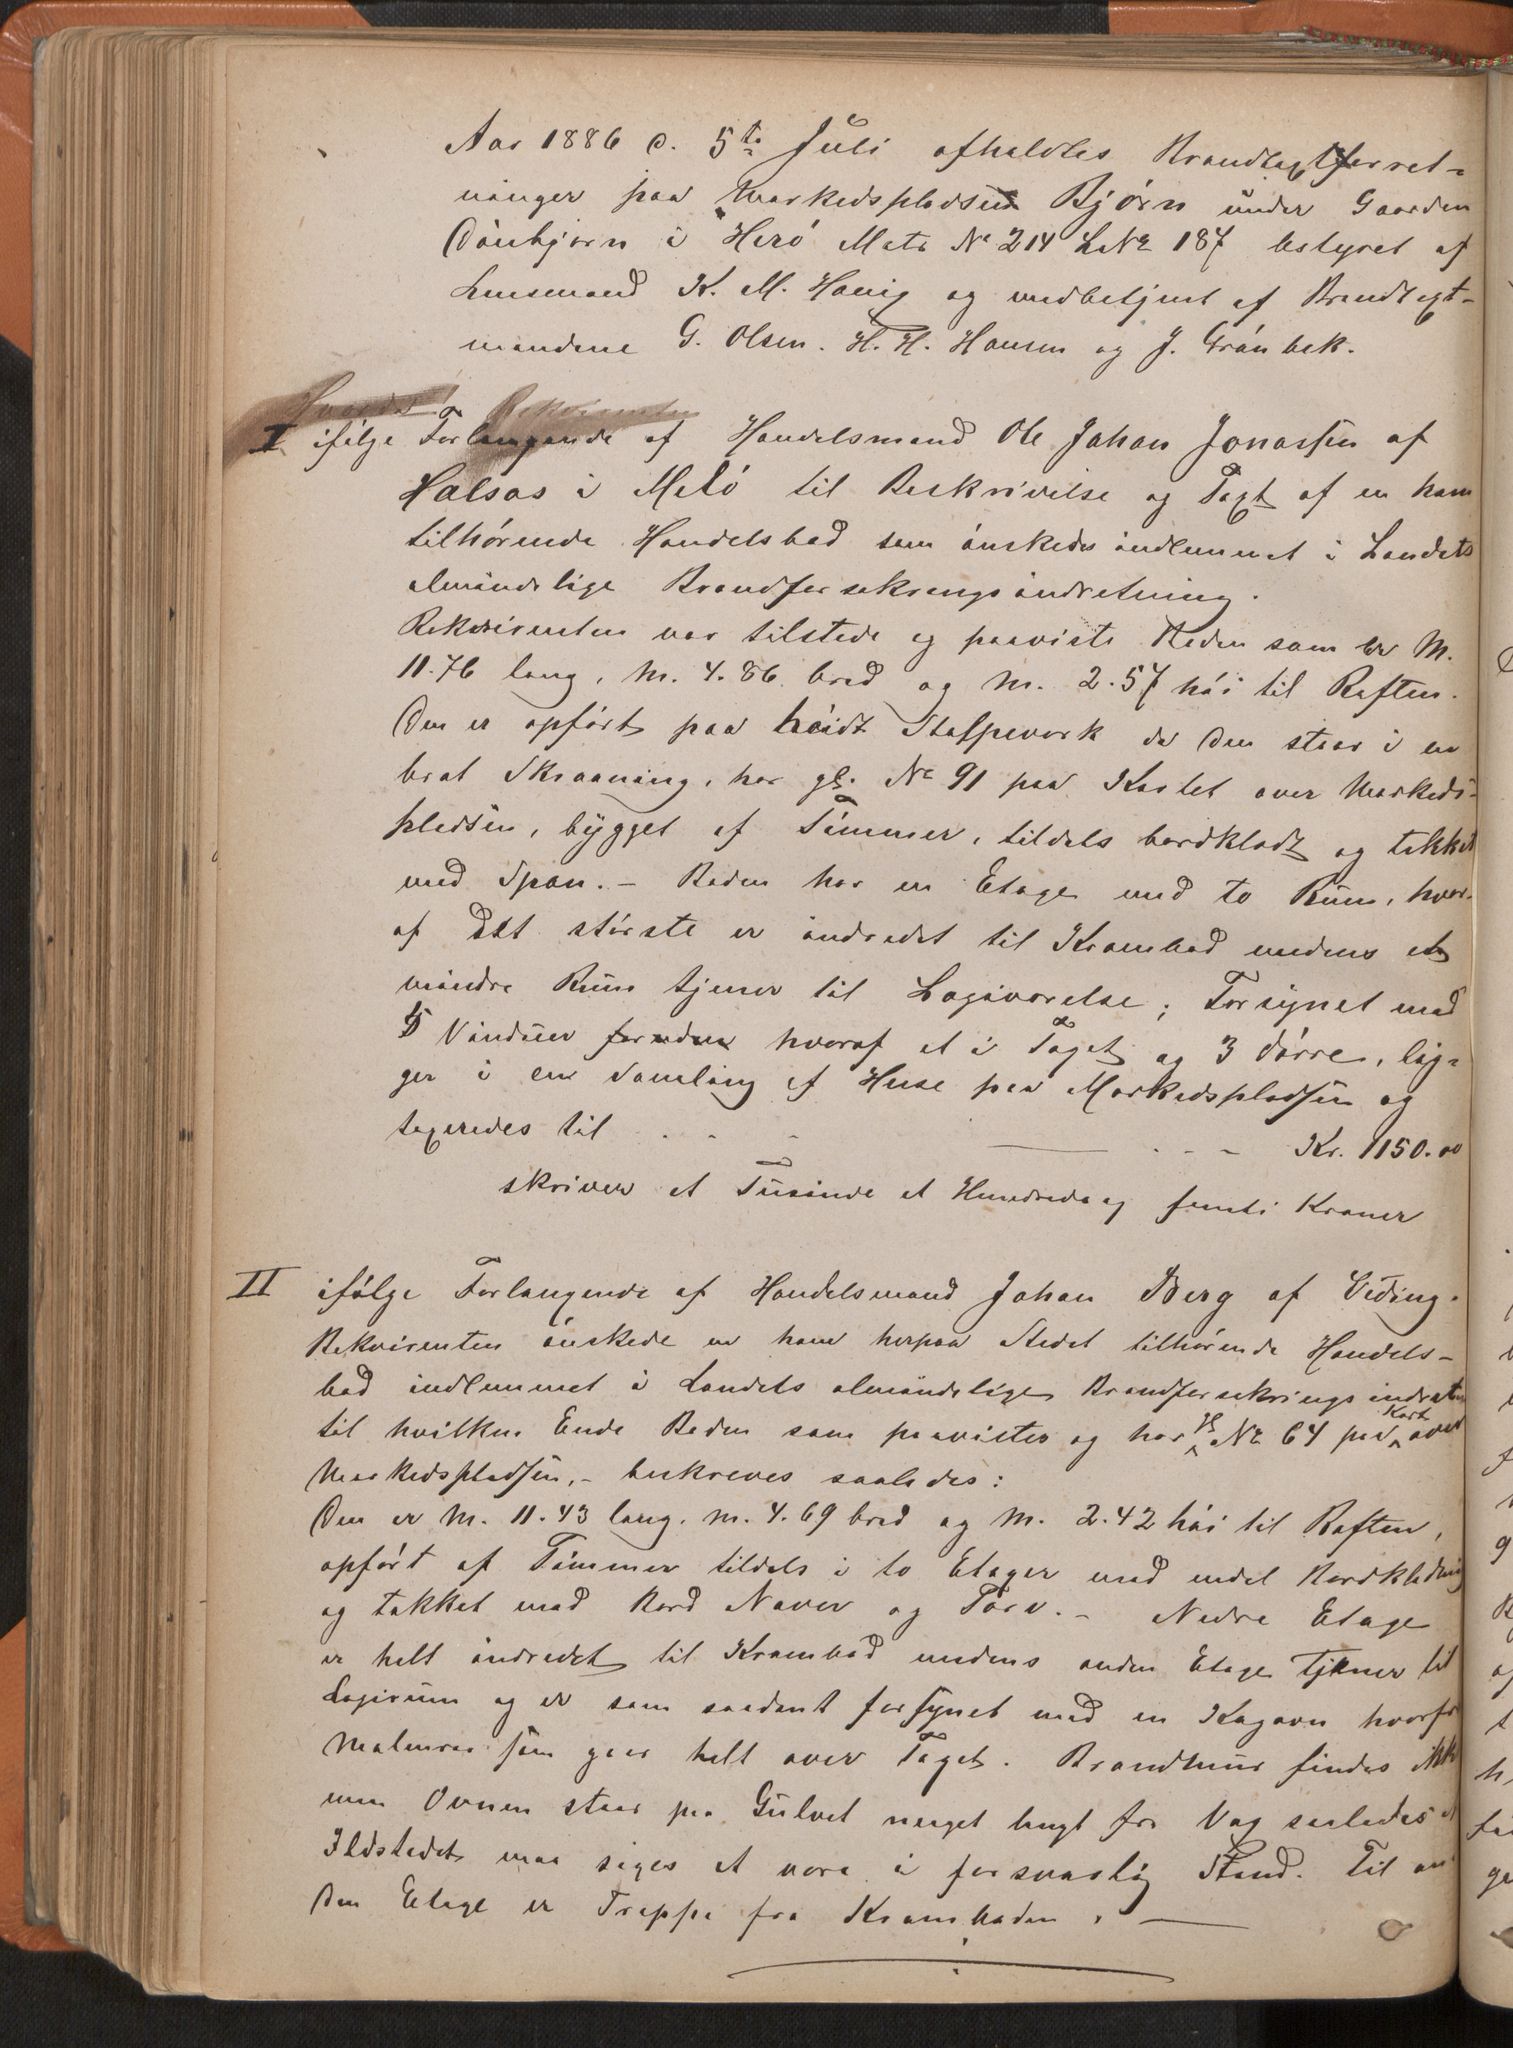 Aar 1886 d. 5te Juli afholdtes Brandtaxtforret-
ninger paa Markedspladsen Bjørn under Gaarden
Dønbjørn i Herø Matr No 214 LNo 187 bestyret af
Lensmand K. M. Havig og medbetjent af Brandtaxt-
mændene G. Olsen. H. H. Hansen og J. Grønbek.
Hvorda Rekvirenten
I ifølge Forlangende af Handelsmand Ole Johan Jonassen af
Halsos i Melø til Beskrivelse og Taxt af en ham
tilhørende Handelsbod som ønskedes indlemmet i Landets
almindelige Brandforsekringsindretning.
Rekvirenten var tilstede og paaviste Boden som er M.
11.76 lang, M. 4.86 bred og M. 2.57 høi til Raften.
Den er opført paa høidt Stolpeverk da den staar i en
brat Skraaning, har gl. No 91 paa Kartet over Markeds-
pladsen, bygget af Tømmer, tildels bordklædt og tekket
med Spon. - Boden har en Etage med to Rum, hvor-
af det største er indredet til Krambod medens et
mindre Rum tjener til Logiværelse; Forsynet med
5 Vinduer foruden hvoraf et i Taget og 3 Dørre, lig-
ger i en Samling af Huse paa Markedspladsen og
taxeredes til . . - - . . - Kr. 1150.00
skriver et Tusinde et Hundrede og femti Kroner
II ifølge Forlangende af Handelsmand Johan Berg af Viding.
Rekvirenten ønskede en ham herpaa Stedet tilhørende Handels-
bod indlemmet i Landets almindelige Brandforsekringsindretn
til hvilken Ende Boden som paavistes og har gl No 64 paa Kart over
Markedspladsen, - beskreves saaledes:
Den er M. 11.43 lang, M. 4.69 bred og M. 2.42 høi til Raften,
opført af Tømmer tildels i to Etager med endel Bordklædning
og tekket med Bord Næver og Torv. - Nedre Etage
er helt indredet til Krambod medens anden Etage tjener til
Logirum og er som saadant forsynet med en Kogovn hvorfra
Malmrør som gaar helt over Taget. Brandmur findes ikke
men Ovnen staar paa Gulvet meget langt fra Væg saaledes at
Ildstedet maa siges at være i forsvarlig Stand. Til an-
den Etage er Trappe fra Kramboden. -